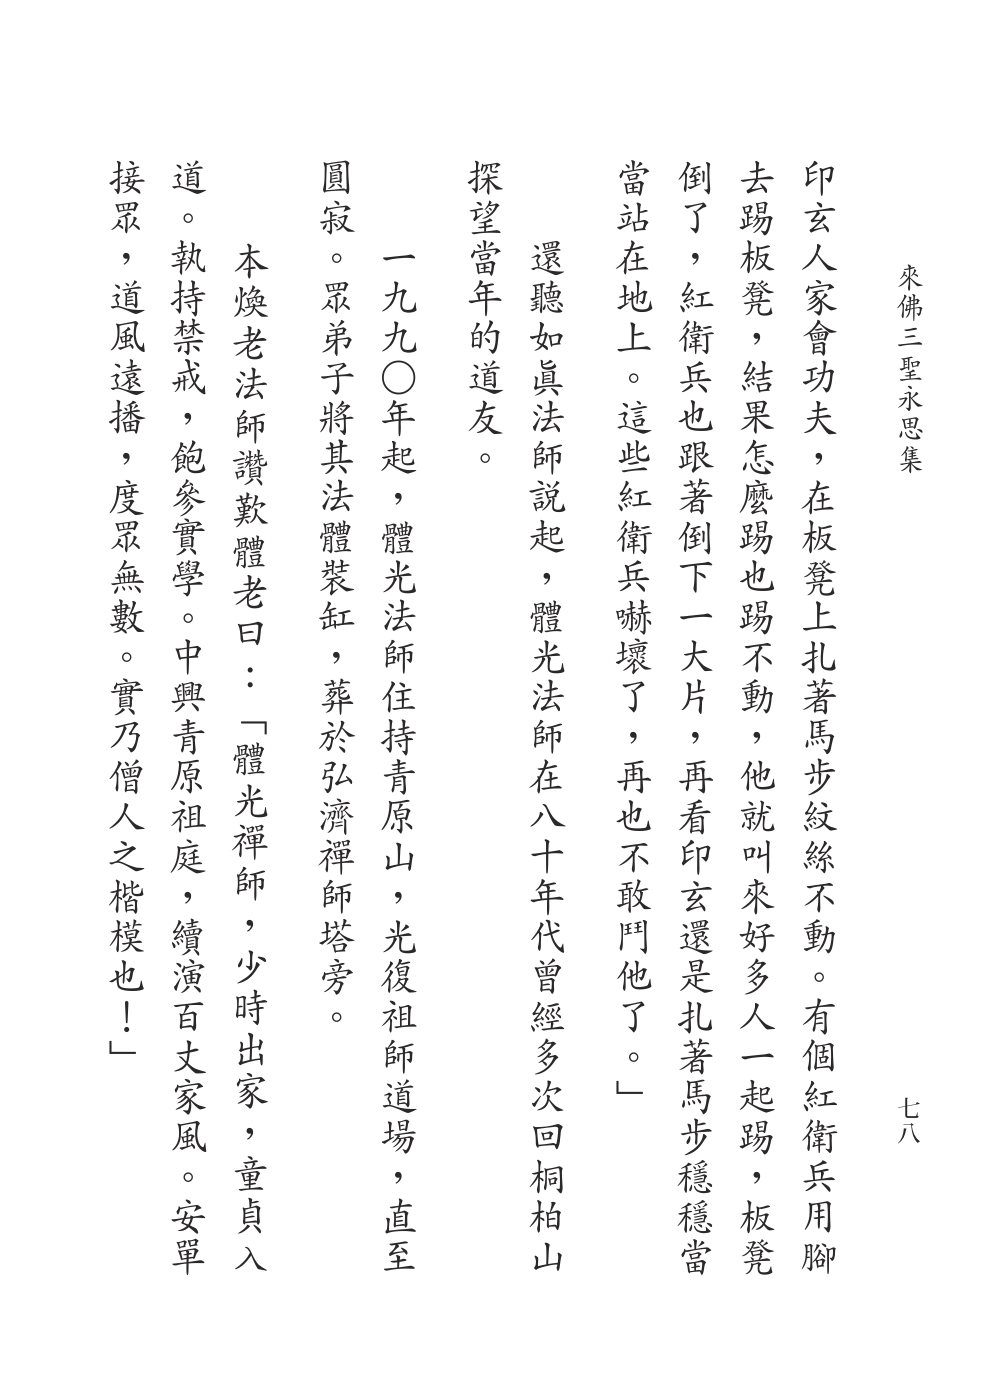 來佛三聖永思集
七八
印玄人家會功夫，在板凳上扎著馬步紋絲不動。有個紅衛兵用腳
去踢板凳，結果怎麼踢也踢不動，他就叫來好多人一起踢，板凳
倒了，紅衛兵也跟著倒下一大片，再看印玄還是扎著馬步穩穩當
當站在地上。這些紅衛兵嚇壞了，再也不敢鬥他了。」
還聽如眞法師説起，體光法師在八十年代曾經多次回桐柏山
探望當年的道友。
一九九〇年起，體光法師住持青原山，光復祖師道場，直至
圓寂。眾弟子將其法體裝缸，葬於弘濟禪師塔旁。
本煥老法師讚歎體老曰：「體光禪師，少時出家，童貞入
道。執持禁戒，飽參實學。中興青原祖庭，續演百丈家風。安單
接眾，道風遠播，度眾無數。實乃僧人之楷模也！」